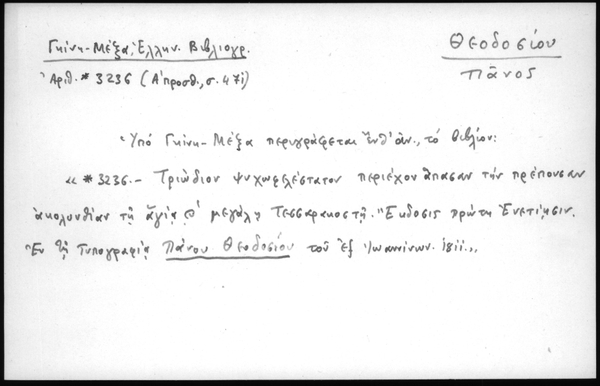 Γκίνη-Μέξα, Ἑλλην. Βιβλιογρ.
Θεοδοσίου
Πᾶνος
Ἀριθ. * 3236 (Α' προσθ., σ. 471)
Ὑπό Γκίνη-Μέξα περιγράφεται ἔνθ' ἀν., τό βιβλίον:
« * 3236.- Τριώδιον ψυχωφελέστατον περιέχον ἅπασαν τήν πρέπουσαν
ἀκολουθίαν τῇ ἁγίᾳ μεγάλῃ Τεσσαρακοστῇ. Ἔκδοσις πρώτη Ἐνετίῃσιν.
Ἐν τῇ Τυπογραφίᾳ Πάνου Θεοδοσίου τοῦ ἐξ Ἰωαννίνων. 1811.»